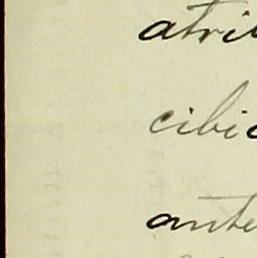 atri
cibi
ante